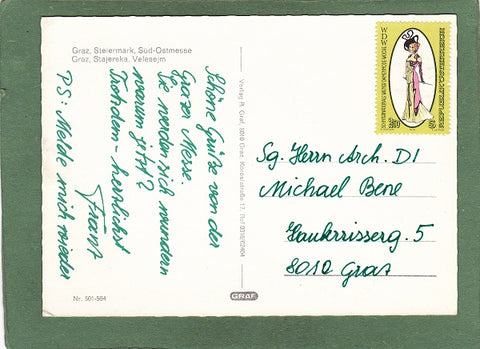 Graz, Steiermark, Süd-Ostmesse
Graz, Stajerska, Velesejm
Schöne Grüße von der
Grazer Messe.
Sie werden sich wundern
warum jetzt?
Trotzdem - herzlichst
Franz
PS: Melde mich wieder
Nr. 501-564
Verlag R. Graf, 8010 Graz,
GRAF
WDW
Sg. Herrn Arch. DI
Michael Bene
5
8010 Graz